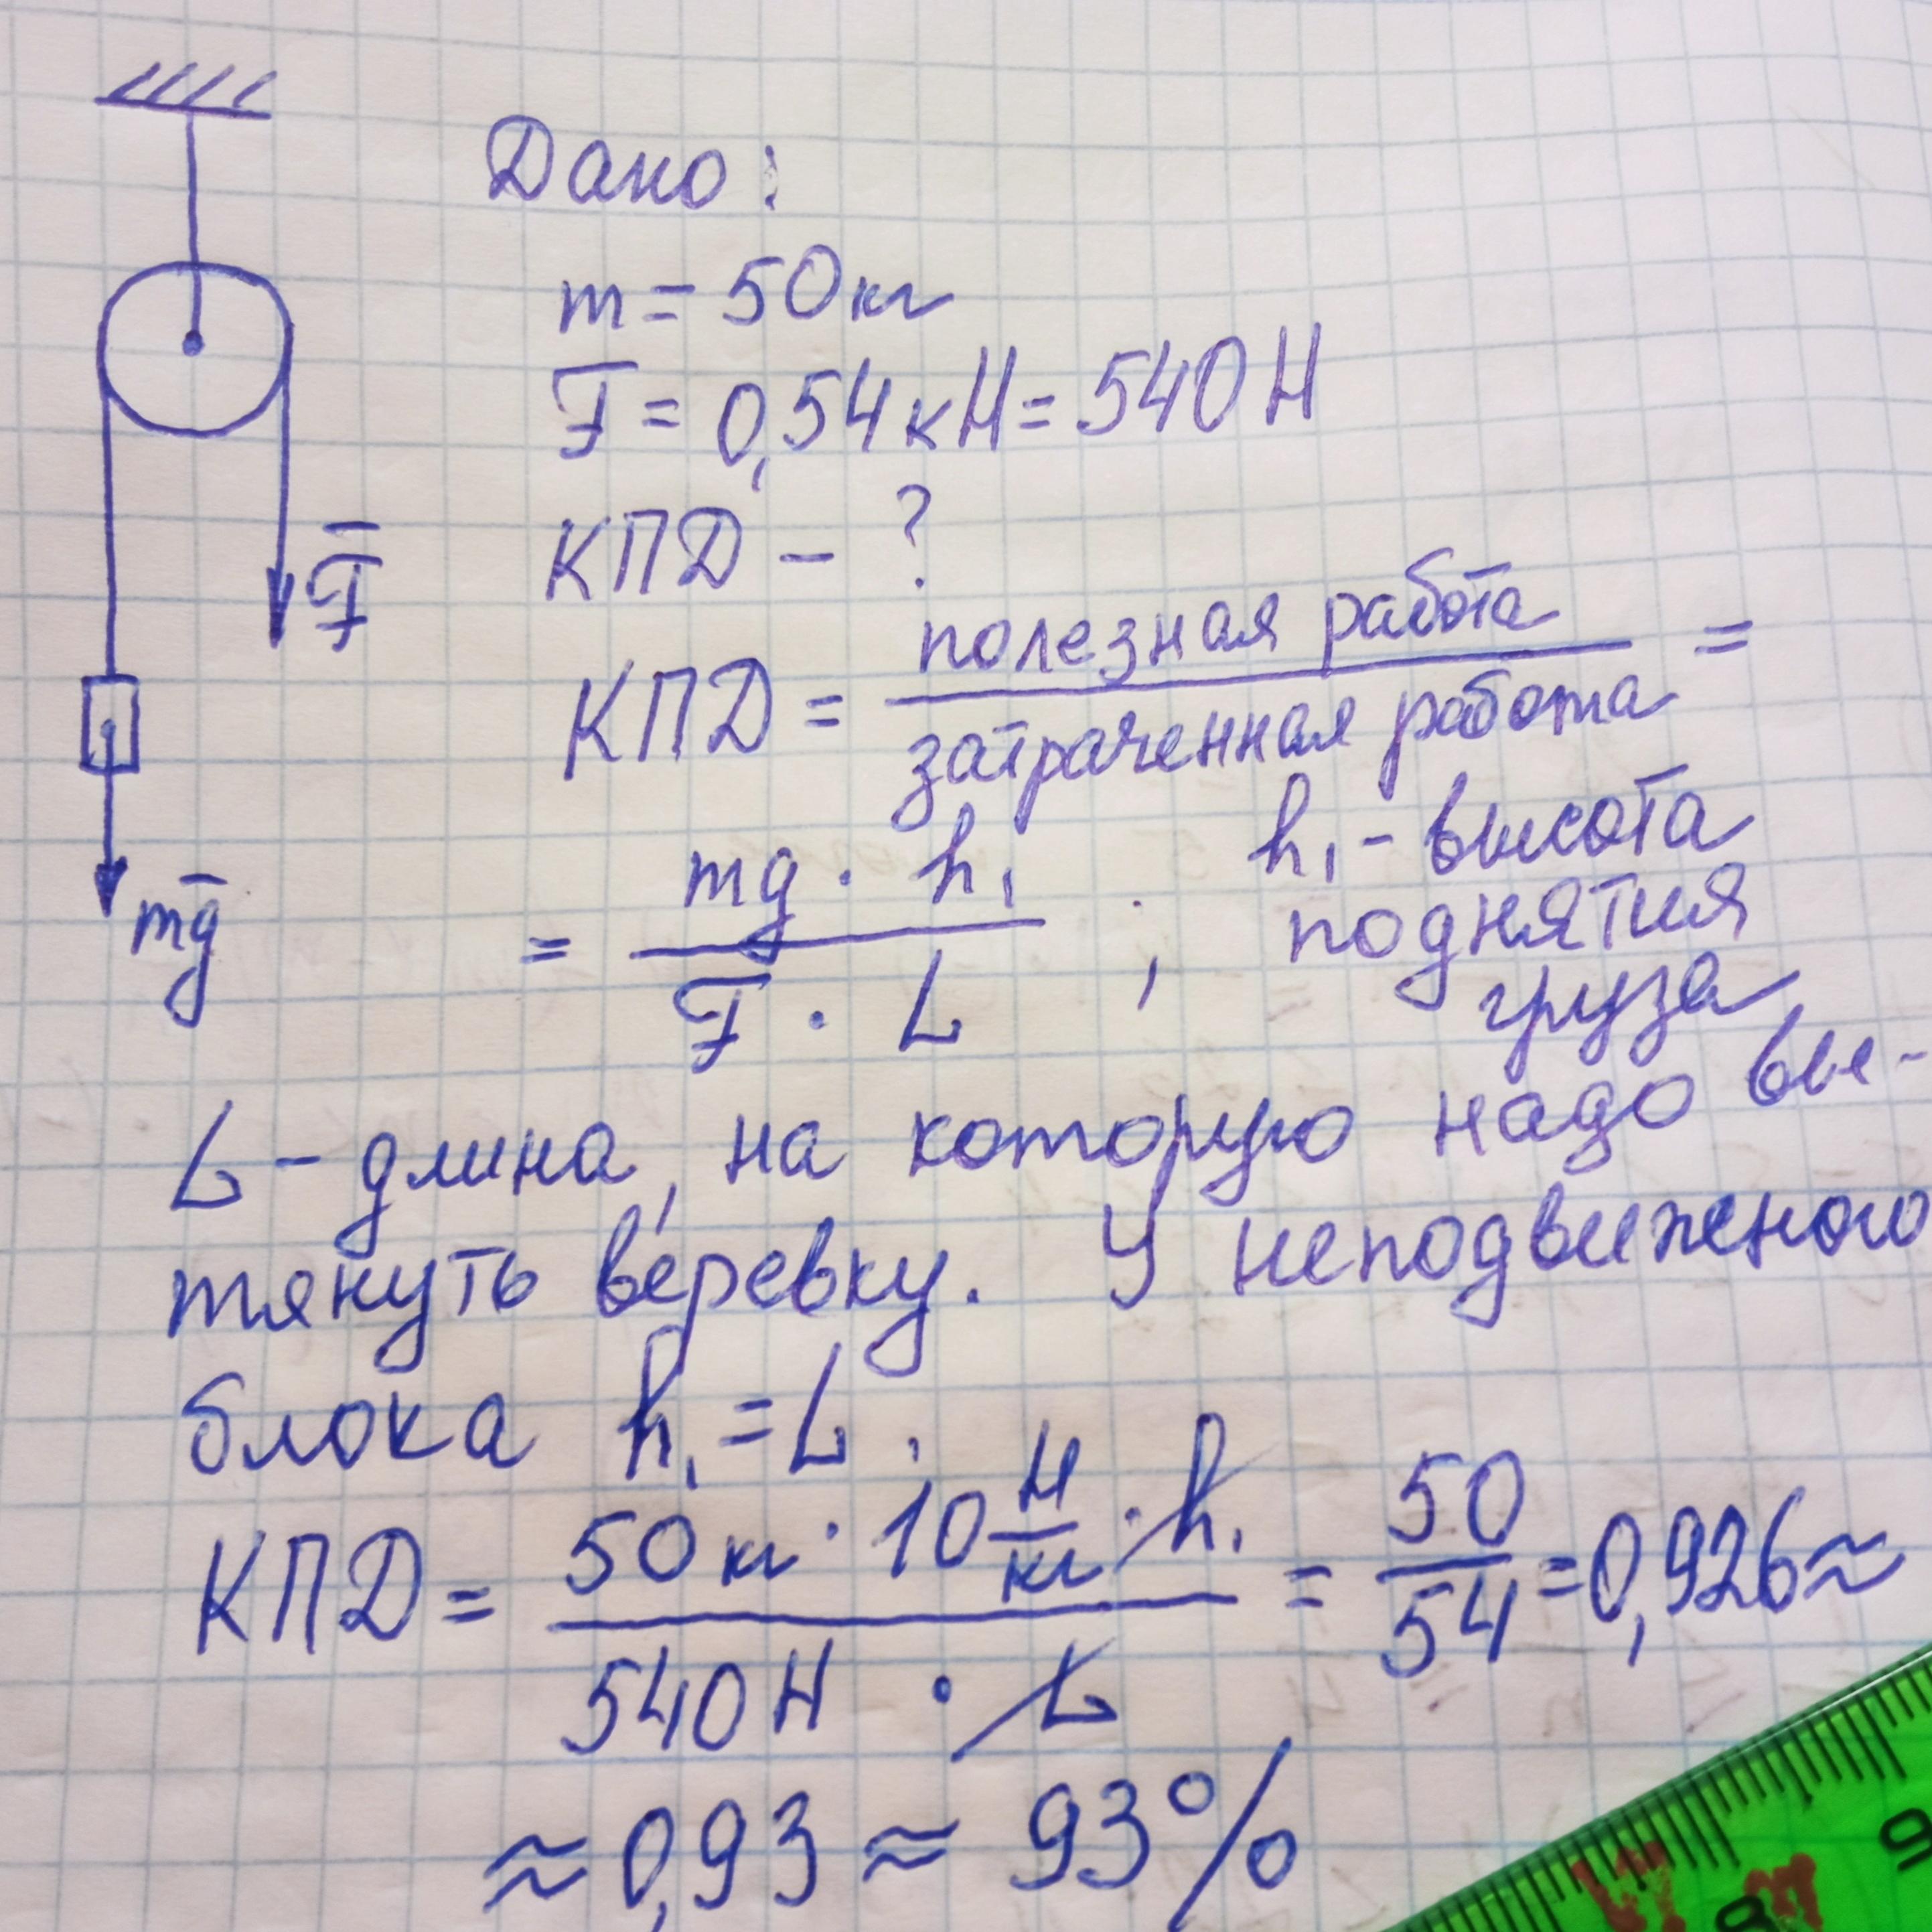 Дано:
m = 50 кг
F = 0,54 кН = 540 Н
F̅
КПД - ?
КПД = полезная работа / затраченная работа =
mg̅
= mg · h₁ / F · L ; h₁ - высота
поднятия
груза
L - длина, на которую надо вы-
тянуть верёвку. У неподвижного
блока h₁ = L.
КПД = 50 кг · 10 Н/кг · h₁ / 540 Н · L = 50/54 = 0,926 ≈
≈ 0,93 ≈ 93%
9
8